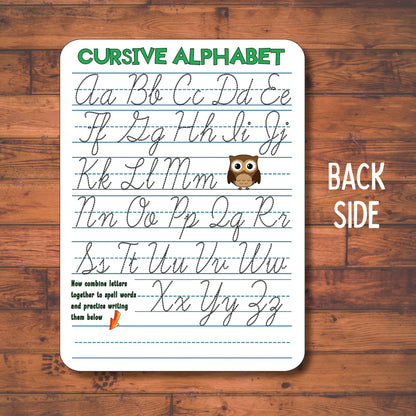 CURSIVE ALPHABET
Aa Bb Cc Dd Ee
Ff Gg Hh Ii Jj
Kk Ll Mm
Nn Oo Pp Qq Rr
Ss Tt Uu Vv Ww
Now combine letters
together to spell words
and practice writing
them below
Xx Yy Zz
BACK
SIDE